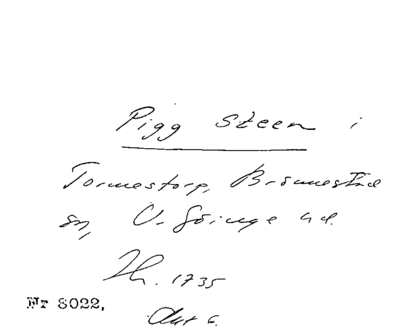 Pigg Steen i
Tormestorp, Brönnestad
sn, V. Göinge hd.
1735
Nr 8022,